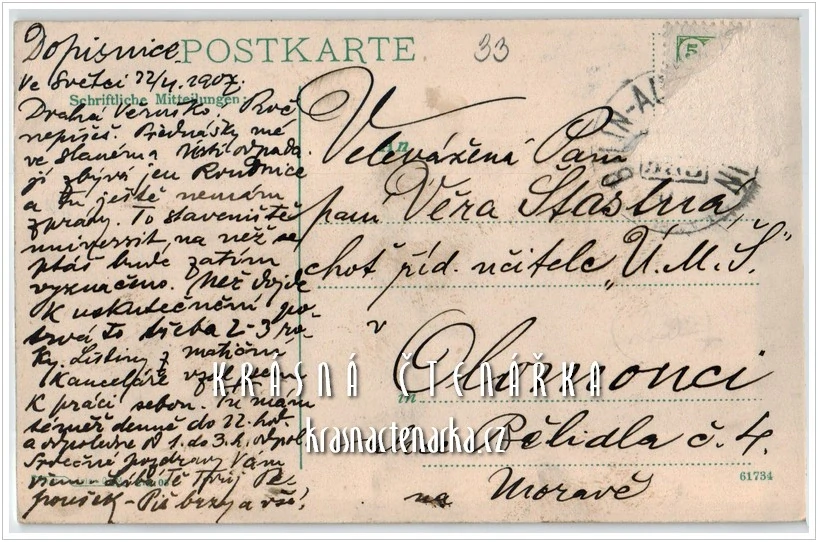 Dopisnice
POSTKARTE
33
5
Ve Světci 22/4. 1907.
Schriftliche Mitteilungen:
Drahá Věruško, Proč
nepíšeš. Přednášky mé
ve Starém a Ústí odpada-
jí zbývá jen Roudnice
a tu ještě nemám
zprávy. To staveniště
universit, na něž se
ptáš bude zatím
vyznačeno. Než dojde
k uskutečnění po-
trvá to třeba 2-3 ro-
ky. Listiny z matiční
Kanceláře vzal jsem
k práci sebou. Tu mám
téměř denně do 12. hod.
a odpoledne od 1. do 3. h. odpol
Srdečné pozdravy Vám
všem - Líbá tě Tvůj Pe-
poušek - Piš brzy a vše!
An
Velevážená Paní
paní Věra Šťastná
choť říd. učitele „Ú.M.Š."
v
in
Olomouci
ulice Bělidla č. 4.
na Moravě
61734
BILIN-
KRÁSNÁ ČTENÁŘKA
krasnactenarka.cz